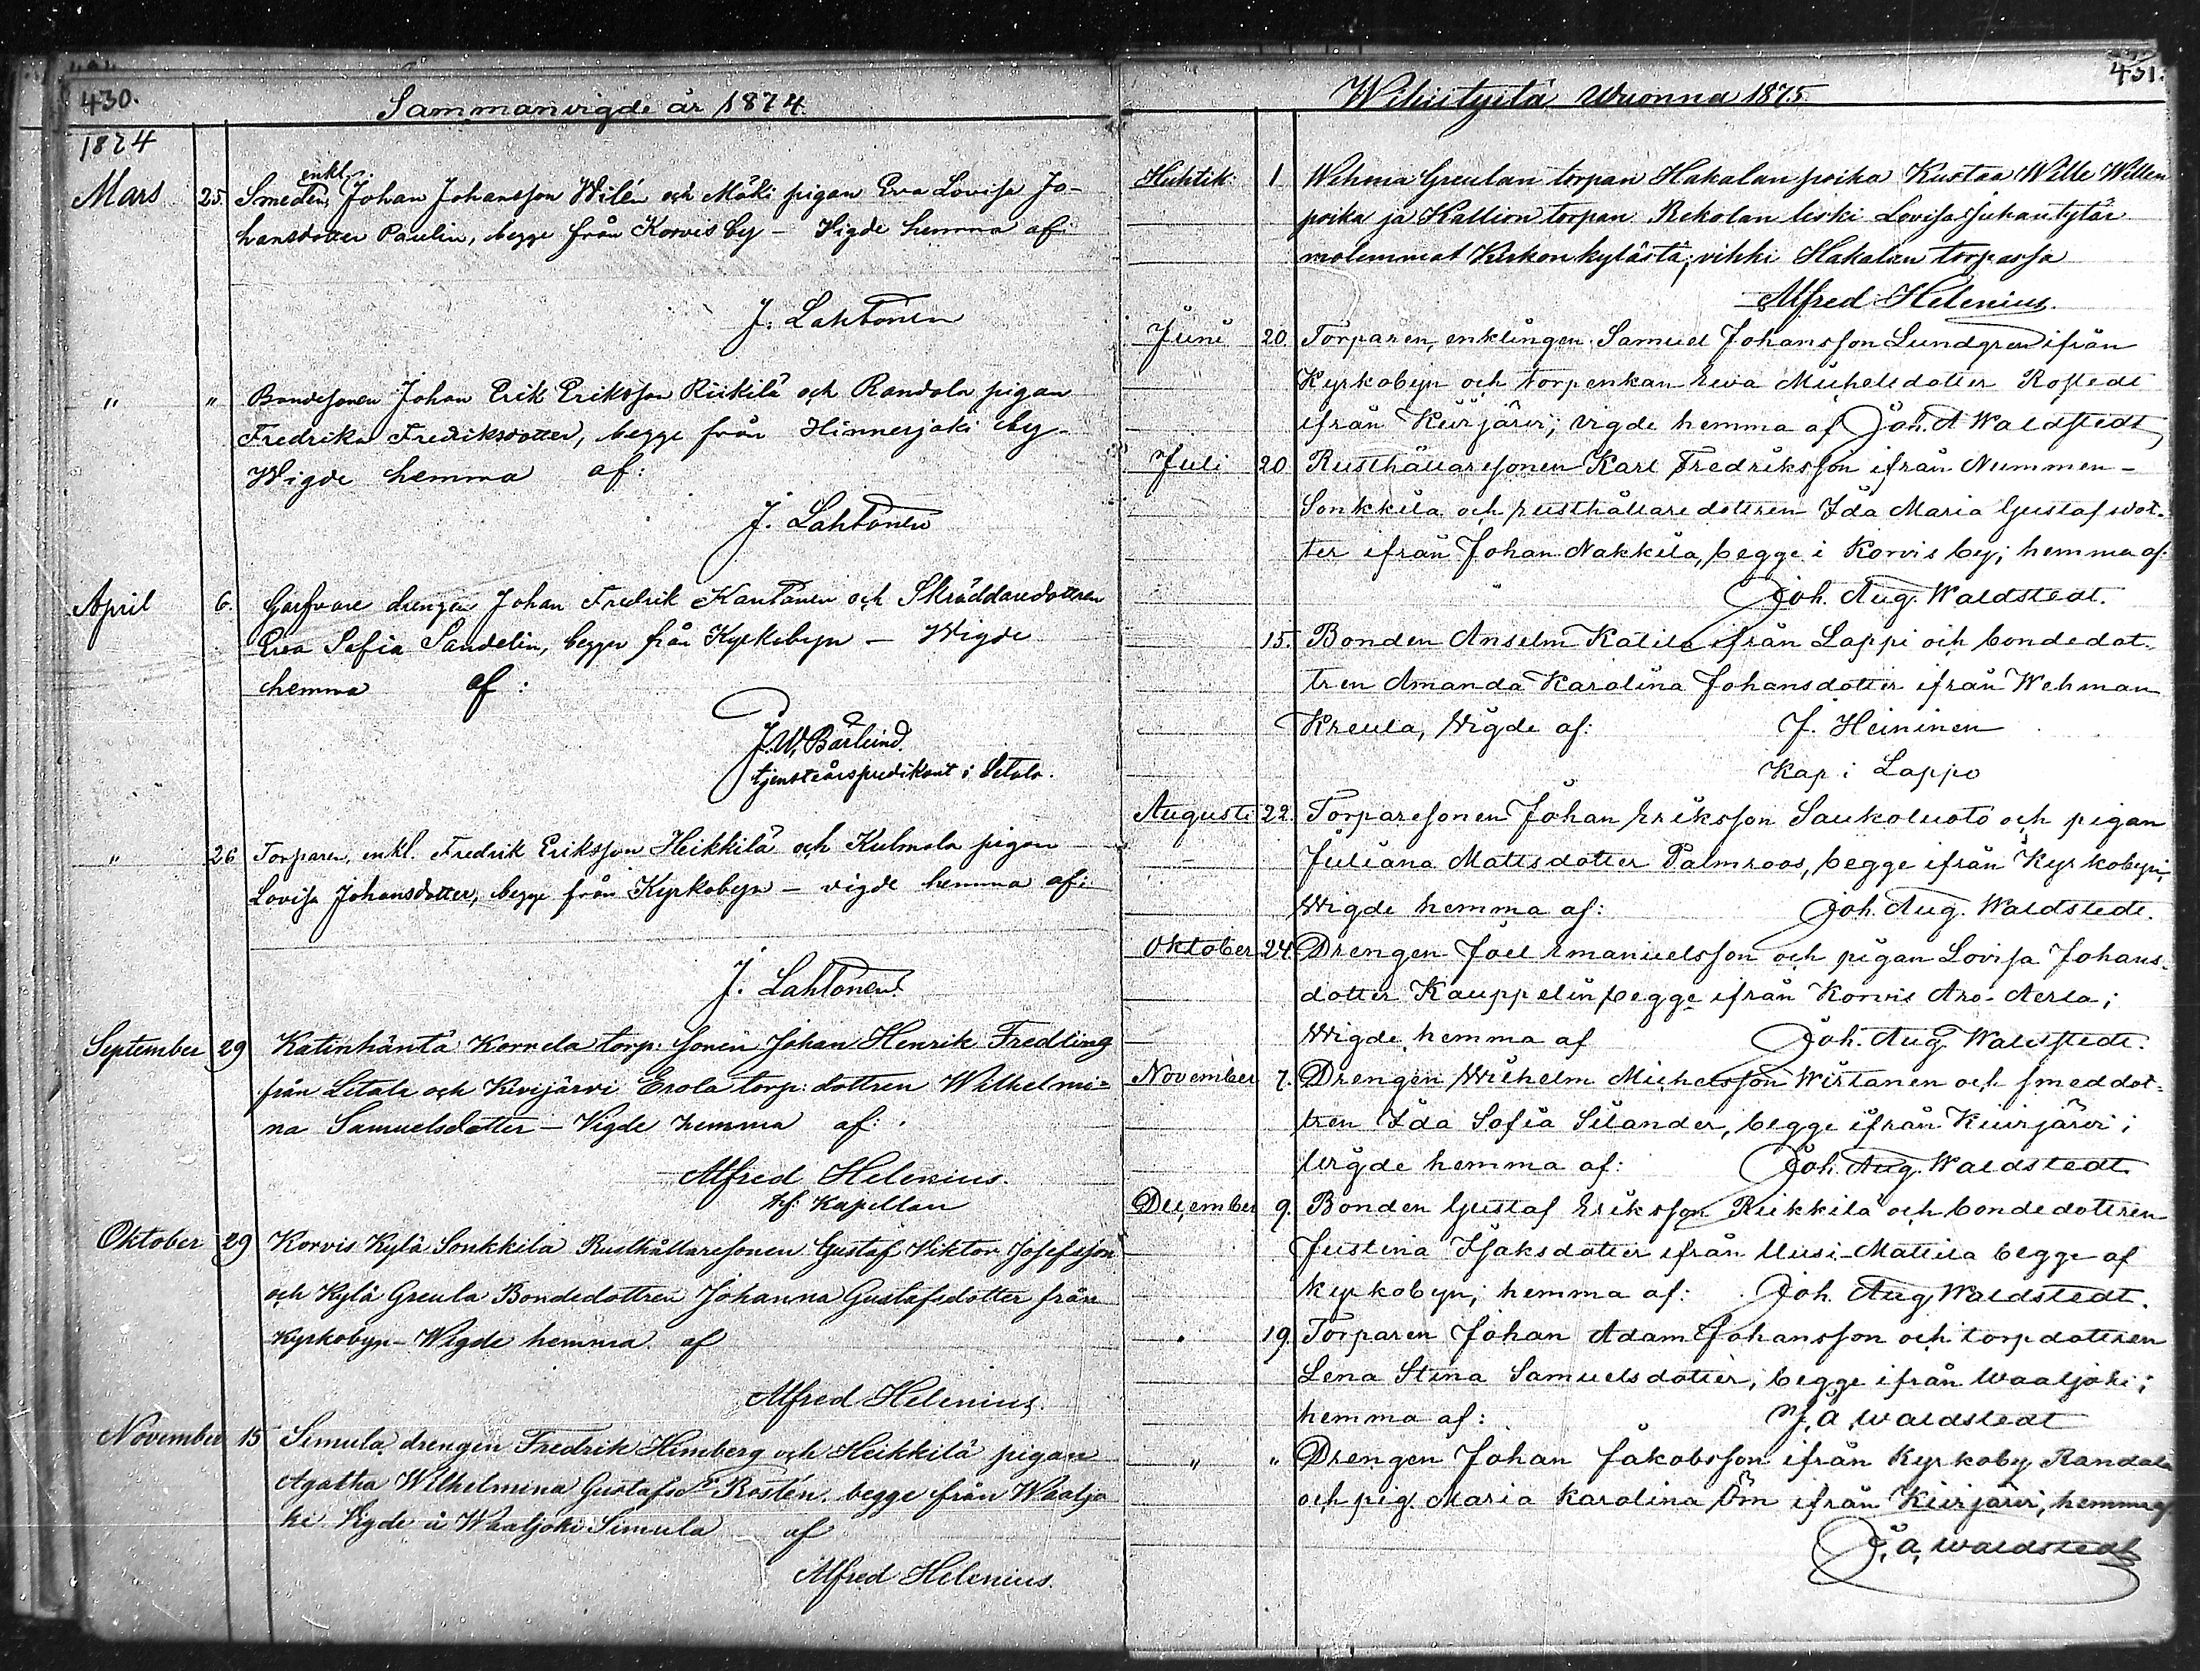 430.
Sammanvigde år 1874.
1874
Mars 25. Smeden, enkl. Johan Johansson Wilén och Mäki pigan Eva Lovisa Jo-
hansdotter Paulin, begge från Korvis by – Vigde hemma af:
J. Lahtonen
" " Bondesonen Johan Erik Eriksson Riikilä och Randola pigan
Fredrika Fredriksdotter, begge från Hinnerjoki by –
Wigde hemma af:
J. Lahtonen
April 6. Garfvare drengen Johan Fredrik Kantonen och Skräddaredottren
Eva Sofia Sandelin, begge från Kyrkobyn – Wigde
hemma af:
J. W. Bärlund.
tjensteårspredikant i Letala.
" 26 Torparen, enkl. Fredrik Eriksson Heikkilä och Kulmala pigan
Lovisa Johansdotter, begge från Kyrkobyn – vigde hemma af:
J. Lahtonen.
September 29 Katinhäntä Kornela torp: sonen Johan Henrik Fredling
från Letala och Kivijärvi Erola torp: dottren Wilhelmi=
na Samuelsdotter – Vigde hemma af:
Alfred Helenius.
tf. Kapellan
Oktober 29 Korvis Kylä Sonkkila Rusthållaresonen Gustaf Viktor Josefsson
och Kylä Greula Bondedottren Johanna Gustafsdotter från
Kyrkobyn – Wigde hemma af
Alfred Helenius.
November 15 Simula drengen Fredrik Himberg och Heikkilä pigan
Agatha Wilhelmina Gustafsdr Rostén, begge från Waaljo
ki Vigde å Waaljoki Simula af
Alfred Helenius.
431.
Wihityitä Wuonna 1875.
Huhtik. 1 Wehma Greulan torpan Hakalan poika Kustaa Wille Willen
poika ja Kallion torpan Rekolan leski Lovisa Juhantytär
molemmat Kirkonkylästä; vihki Hakalan torpassa
Alfred Helenius.
Juni 20. Torparen, enklingen Samuel Johansson Lundgren ifrån
Kyrkobyn och torpenkan Eva Michelsdotter Rostedt
ifrån Kivijärvi; vigde hemma af Joh. A Waldstedt
Juli 20 Rusthållaresonen Karl Fredriksson ifrån Nummen-
Sonkkila och rusthållaredottren Ida Maria Gustafsdot-
ter ifrån Johan Nakkila, begge i Korvis by; hemma af:
Joh. Aug. Waldstedt.
15. Bonden Anselm Katila ifrån Lappi och bondedot-
tren Amanda Karolina Johansdotter ifrån Wehman
Kreula, Vigde af: J. Heininen
Kap i Lappo
Augusti 22. Torparesonen Johan Eriksson Saukoluoto och pigan
Juliana Mattsdotter Palmroos, begge ifrån Kyrkobyn;
Wigde hemma af: Joh. Aug. Waldstedt.
Oktober 24. Drengen Joel Emanuelsson och pigan Lovisa Johans-
dotter Kauppelin begge ifrån Korvis Aro-Aerla;
Wigde hemma af Joh. Aug. Waldstedt.
November 7. Drengen Wilhelm Michelsson Wirtanen och smeddot-
tren Ida Sofia Silander, begge ifrån Kivijärvi;
Vigde hemma af: Joh. Aug. Waldstedt
December 9. Bonden Gustaf Eriksson Riikkilä och bondedottren
Justina Isaksdotter ifrån Uusi-Mattila begge af
Kyrkobyn; hemma af: Joh. Aug Waldstedt.
" 19. Torparen Johan Adam Johansson och torpdottren
Lena Stina Samuelsdotter, begge ifrån Waaljoki;
hemma af: J. A. Waldstedt
" " Drengen Johan Jakobsson ifrån Kyrkoby Randala
och pig. Maria Karolina Öm ifrån Kivijärvi, hemma af
J. A. Waldstedt